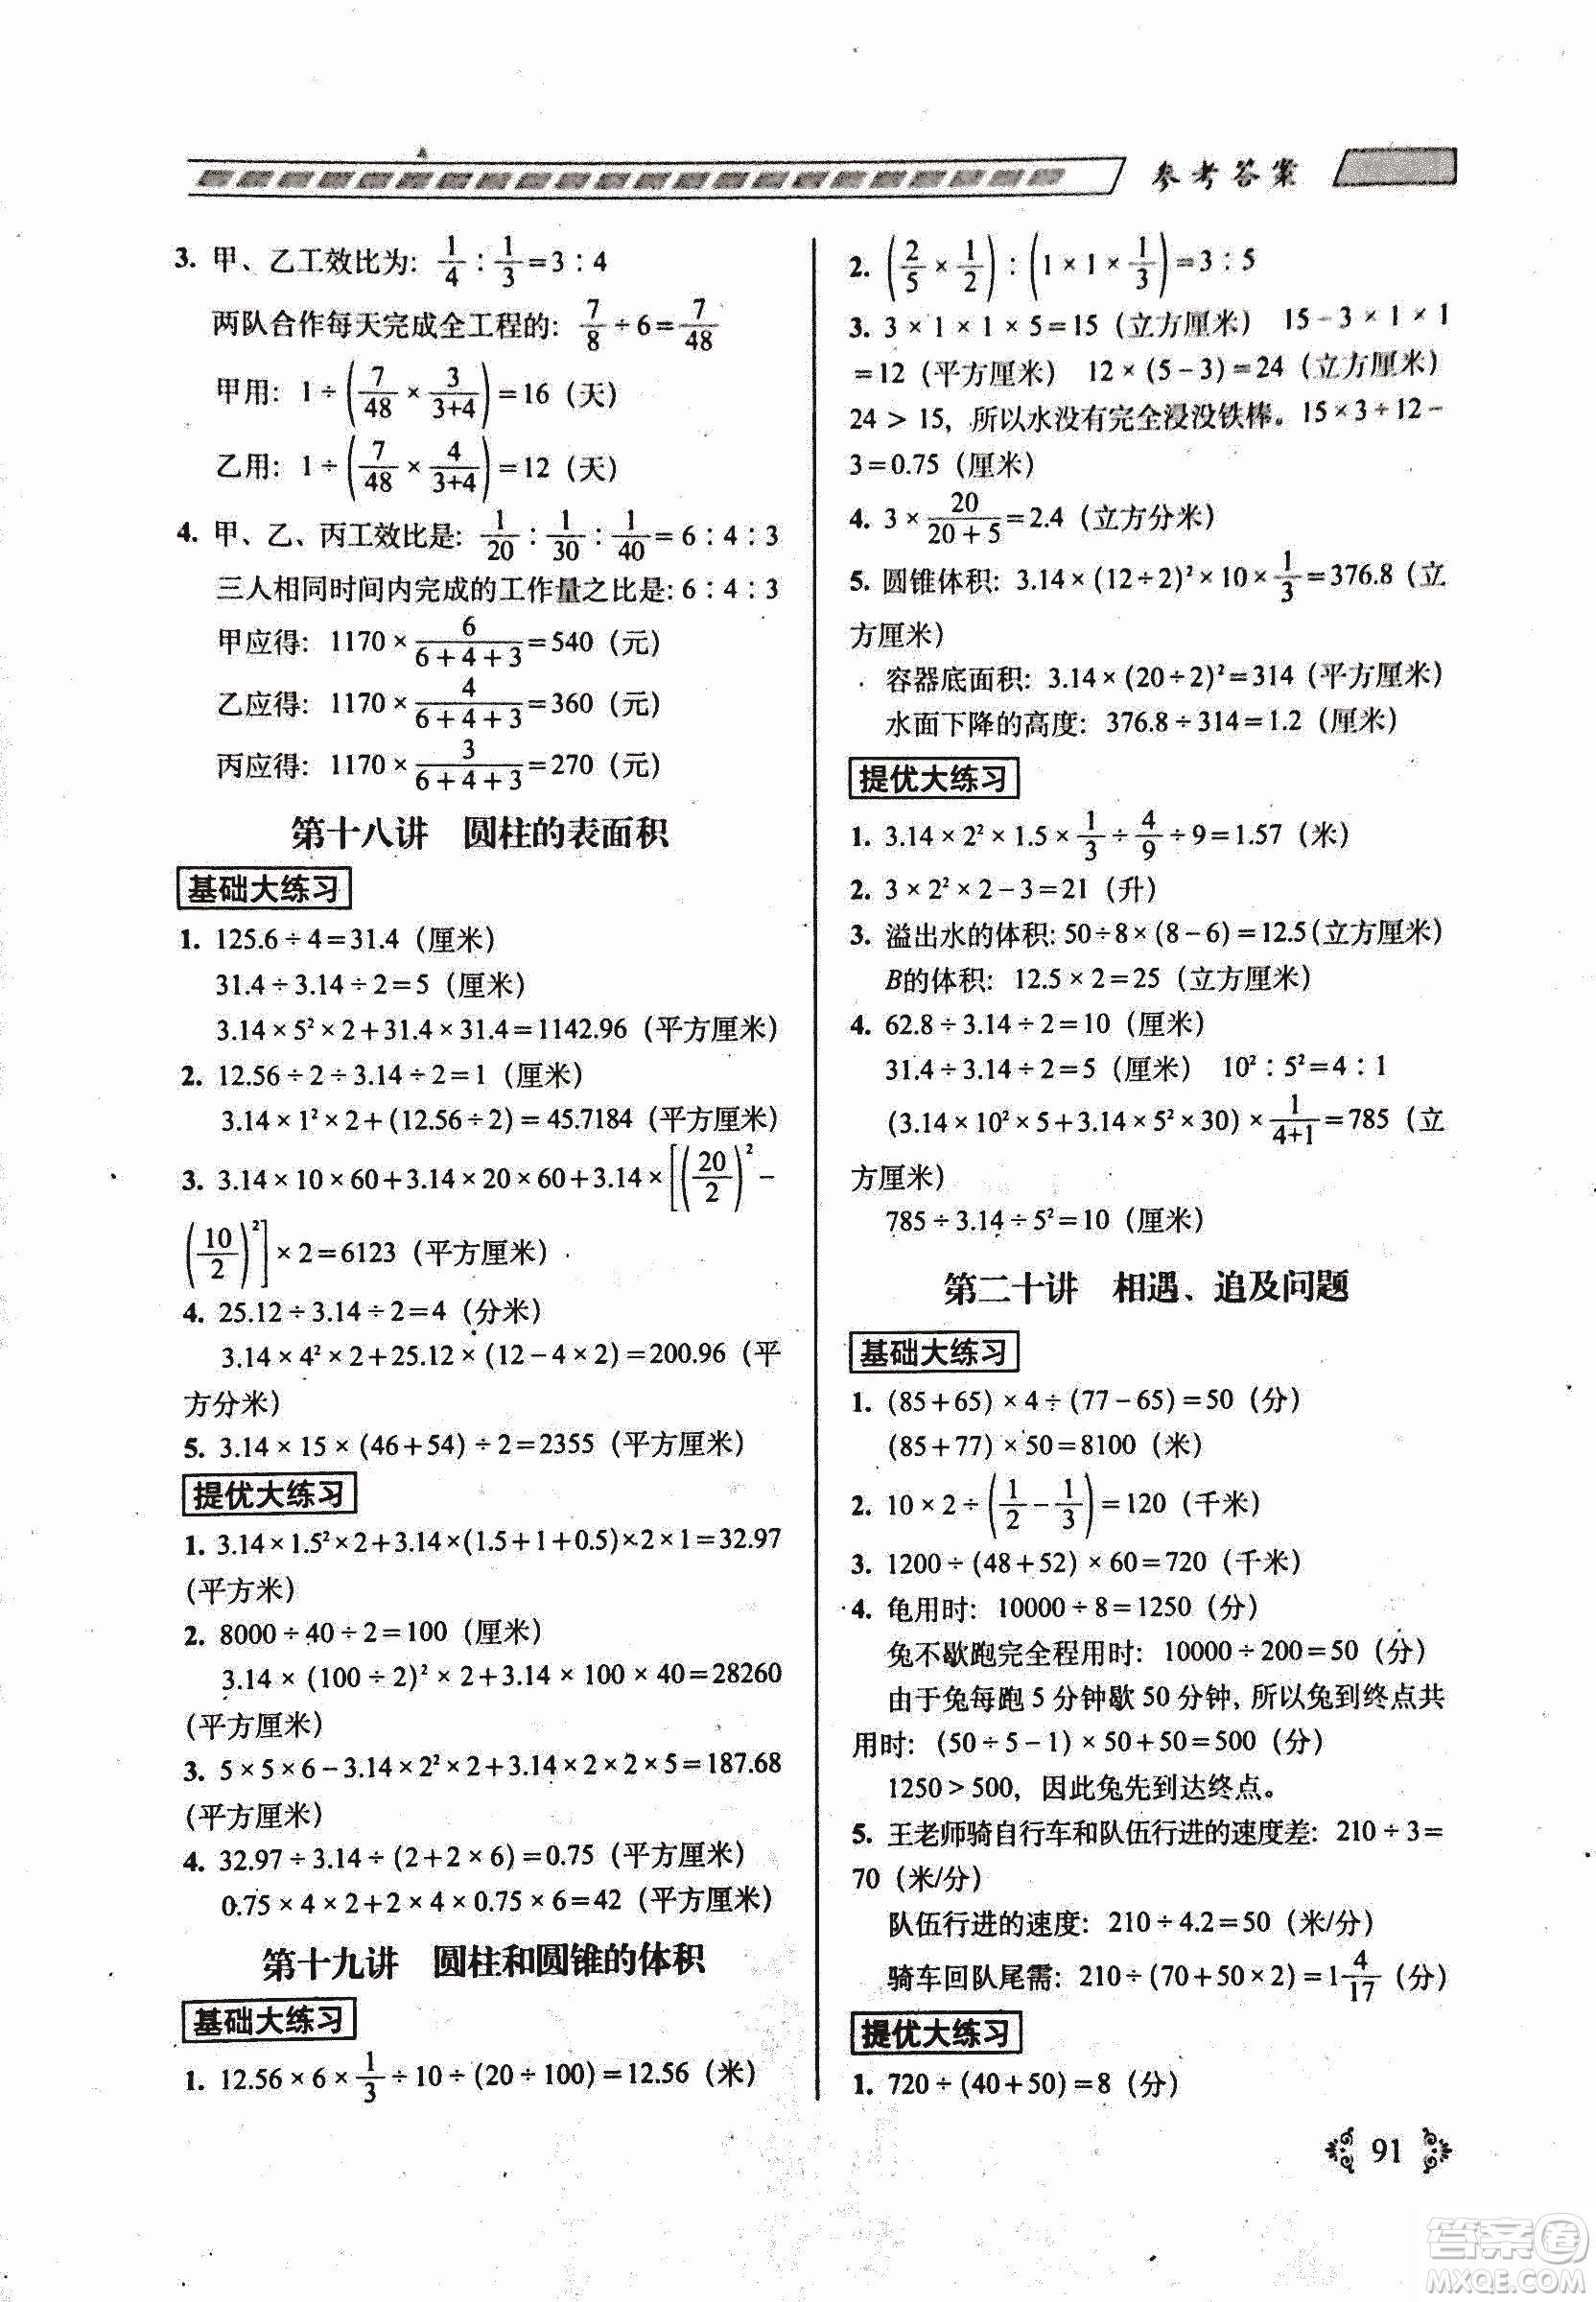 参考答案
3. 甲、乙工效比为: 1/4 : 1/3 = 3 : 4
两队合作每天完成全工程的: 7/8 ÷ 6 = 7/48
甲用: 1 ÷ (7/48 × 3/(3+4)) = 16 (天)
乙用: 1 ÷ (7/48 × 4/(3+4)) = 12 (天)
4. 甲、乙、丙工效比是: 1/20 : 1/30 : 1/40 = 6 : 4 : 3
三人相同时间内完成的工作量之比是: 6 : 4 : 3
甲应得: 1170 × 6/(6+4+3) = 540 (元)
乙应得: 1170 × 4/(6+4+3) = 360 (元)
丙应得: 1170 × 3/(6+4+3) = 270 (元)
第十八讲 圆柱的表面积
基础大练习
1. 125.6÷4=31.4 (厘米)
31.4÷3.14÷2=5 (厘米)
3.14×5²×2+31.4×31.4=1142.96 (平方厘米)
2. 12.56÷2÷3.14÷2=1 (厘米)
3.14×1²×2+(12.56÷2)=45.7184 (平方厘米)
3. 3.14×10×60+3.14×20×60+3.14×[(20/2)²-
(10/2)²]×2=6123 (平方厘米)
4. 25.12÷3.14÷2=4 (分米)
3.14×4²×2+25.12×(12-4×2)=200.96 (平
方分米)
5. 3.14×15×(46+54)÷2=2355 (平方厘米)
提优大练习
1. 3.14×1.5²×2+3.14×(1.5+1+0.5)×2×1=32.97
(平方米)
2. 8000÷40÷2=100 (厘米)
3.14×(100÷2)²×2+3.14×100×40=28260
(平方厘米)
3. 5×5×6-3.14×2²×2+3.14×2×2×5=187.68
(平方厘米)
4. 32.97÷3.14÷(2+2×6)=0.75 (平方厘米)
0.75×4×2+2×4×0.75×6=42 (平方厘米)
第十九讲 圆柱和圆锥的体积
基础大练习
1. 12.56×6×1/3÷10÷(20÷100)=12.56 (米)
2. (2/5×1/2) : (1×1×1/3)=3 : 5
3. 3×1×1×5=15 (立方厘米) 15-3×1×1
=12 (平方厘米) 12×(5-3)=24 (立方厘米)
24>15, 所以水没有完全浸没铁棒。15×3÷12-
3=0.75 (厘米)
4. 3×20/(20+5)=2.4 (立方分米)
5. 圆锥体积: 3.14×(12÷2)²×10×1/3=376.8 (立
方厘米)
容器底面积: 3.14×(20÷2)²=314 (平方厘米)
水面下降的高度: 376.8÷314=1.2 (厘米)
提优大练习
1. 3.14×2²×1.5×1/3÷4/9÷9=1.57 (米)
2. 3×2²×2-3=21 (升)
3. 溢出水的体积: 50÷8×(8-6)=12.5(立方厘米)
B的体积: 12.5×2=25 (立方厘米)
4. 62.8÷3.14÷2=10 (厘米)
31.4÷3.14÷2=5 (厘米) 10² : 5²=4 : 1
(3.14×10²×5+3.14×5²×30)×1/(4+1)=785 (立
方厘米)
785÷3.14÷5²=10 (厘米)
第二十讲 相遇、追及问题
基础大练习
1. (85+65)×4÷(77-65)=50 (分)
(85+77)×50=8100 (米)
2. 10×2÷(1/2-1/3)=120 (千米)
3. 1200÷(48+52)×60=720 (千米)
4. 龟用时: 10000÷8=1250 (分)
兔不歇跑完全程用时: 10000÷200=50 (分)
由于兔每跑5分钟歇50分钟, 所以兔到终点共
用时: (50÷5-1)×50+50=500 (分)
1250>500, 因此兔先到达终点。
5. 王老师骑自行车和队伍行进的速度差: 210÷3=
70 (米/分)
队伍行进的速度: 210÷4.2=50 (米/分)
骑车回队尾需: 210÷(70+50×2)=1 4/17 (分)
提优大练习
1. 720÷(40+50)=8 (分)
91
答案圈
MXQE.COM